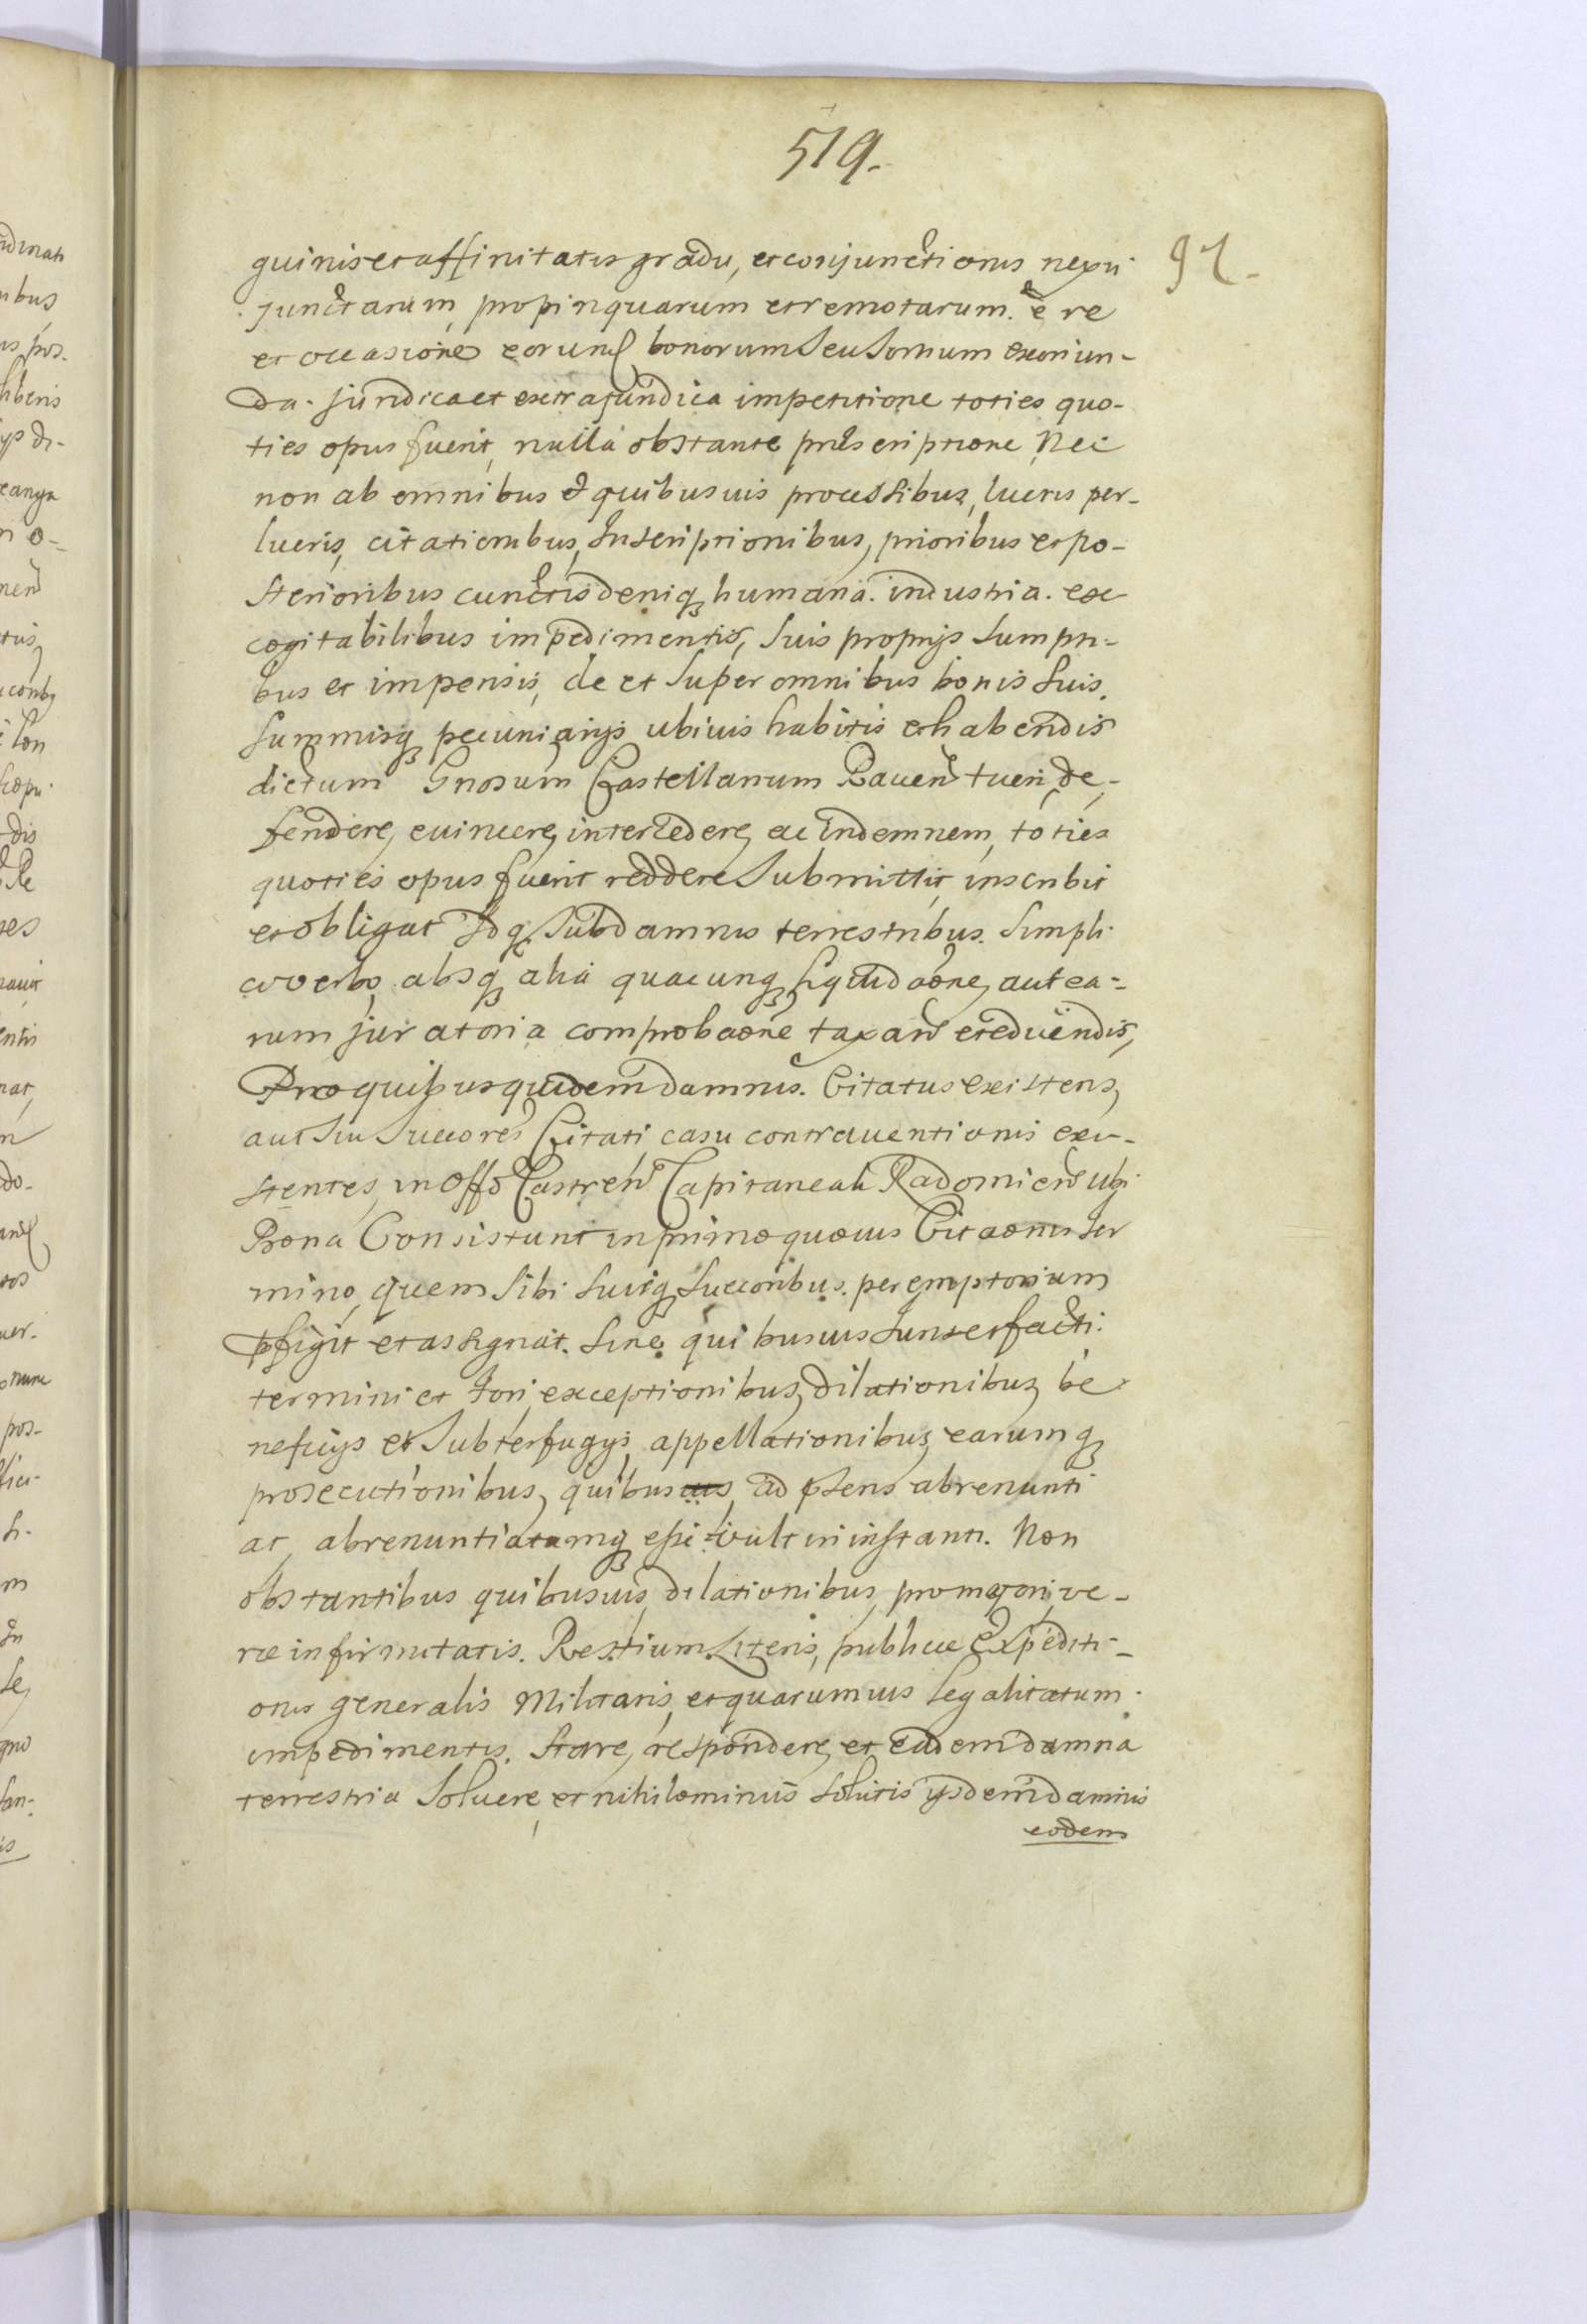 519.
91.
guinis et affinitatis gradu, et conjunctionis nexu
junctarum, propinquarum et remotarum. e re
et occasione eorund bonorum seu sortium exoriun-
da. juridica et extrajuridica impetitione toties quo-
ties opus fuerit, nulla obstante praescriptione Nec
non ab omnibus et quibusuis processibus, lucris per-
lucris, citationibus, Inscriptionibus, prioribus et po-
sterioribus cunctis deniq humana. industria. ex
cogitabilibus impedimentis, suis proprijs sumpti-
bus et impensis, de et super omnibus bonis suis,
summisq pecuniarijs ubiuis habitis et habendis
dictum Gnosum Castellanum Raven tueri, de-
fendere, evincere, intercedere, ac indemnem, toties
quoties opus fuerit reddere submittit, inscribit
et obligat Idq sub damnis terrestribus. simpli
ci verbo, absq alia quacunq liquidaone, aut ea-
rum juratoria comprobaone taxand et educendis,
Pro quibus quidem damnis. Citatus existens,
aut sui succores Citati casu contrauentionis exi-
stentes, in Offo Castren Capitaneali Radomien ubi
Bona Consistunt in primo quouis Citaonis ter
mino, quem sibi suisq succoribus. peremptorium
pfigit et assignat. sine quibusuis Juris et facti.
termini et fori, exceptionibus, dilationibus, be
neficijs et subterfugijs, appellationibus, earumq
prosecutionibus, quibus, ad psens abrenunti
at, abrenuntiatumq esse vult in instanti. Non
obstantibus quibusuis, dilationibus, pro majori, ve-
rae infirmitatis. Restium Literis, publicae Expediti-
onis generalis Militaris, et quarumuis legalitatum.
impedimentis. stare, respondere, et eadem damna
terrestria soluere, et nihilominus solutis ijsdem damnis
eodem